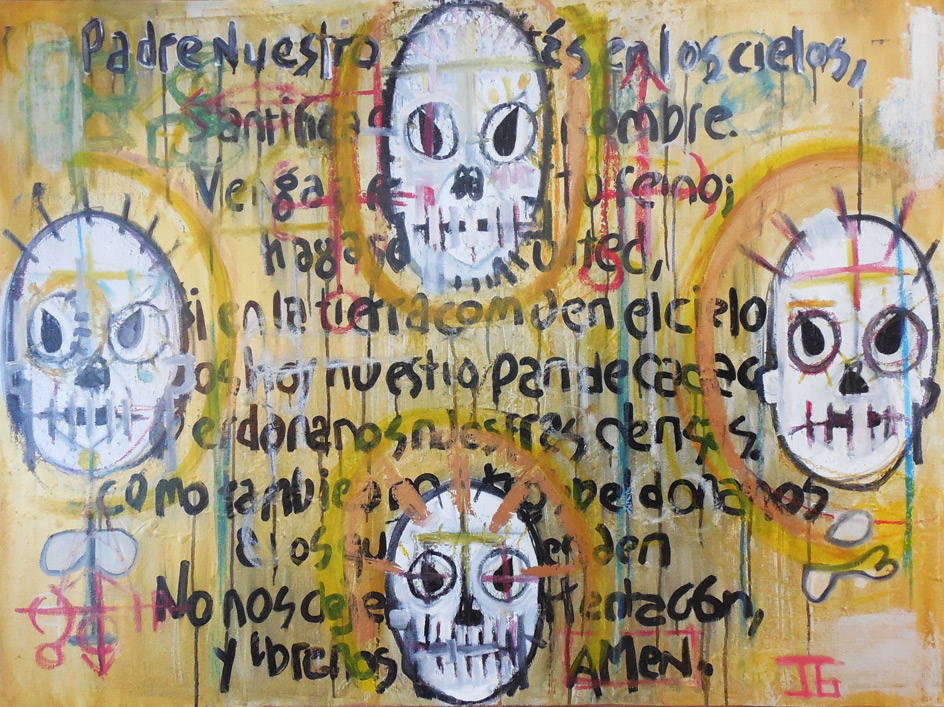 Padre Nuestro tés en los cielos,
Santificad nombre.
Venga tu reino;
hagase tu lted,
si en la tierra com o en el cielo
os hoy nuestro pan de cada d
Perdonanos nuestras ofensas,
como tambien perdonamos
a los den
No nos deje tentación,
y librenos AMEN.
JG